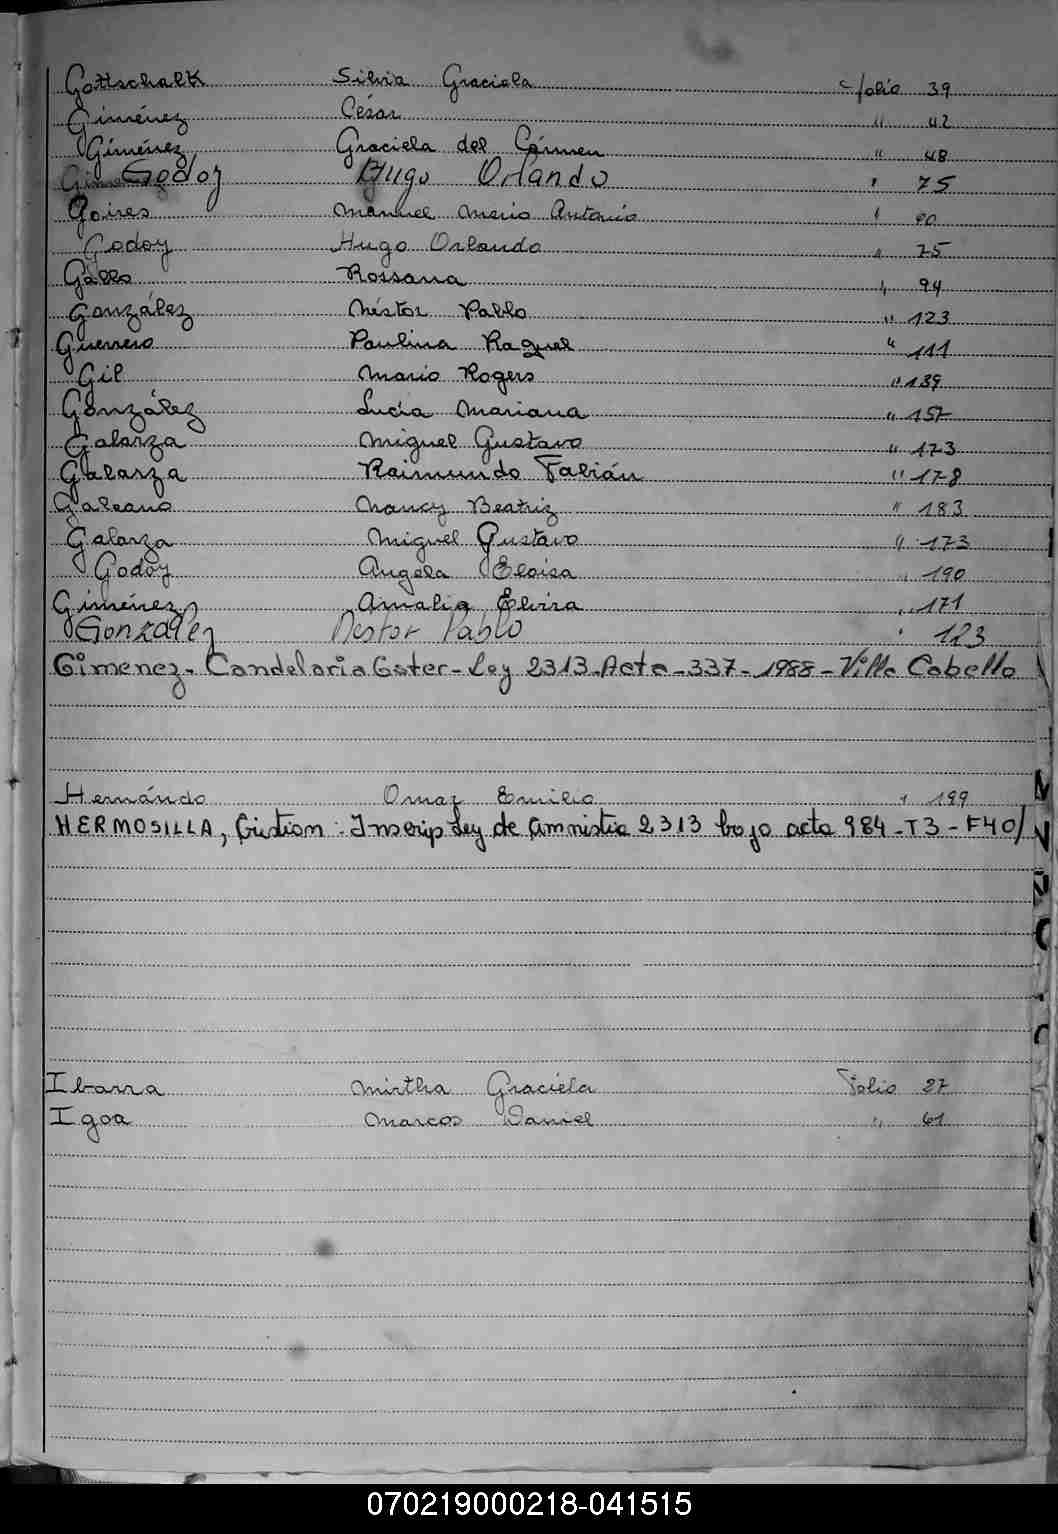 Gottschalk Silvia Graciela folio 39
Giménez César " 42
Giménez Graciela del Cármen " 48
Godoy Hugo Orlando " 75
Goires Manuel Mario Antonio " 90
Godoy Hugo Orlando " 75
Gallo Rossana " 94
González Néstor Pablo " 123
Guerrero Paulina Raquel " 111
Gil Mario Rogers " 139
González Lucía Mariana " 157
Galarza Miguel Gustavo " 173
Galarza Raimundo Fabián " 178
Galeano Nancy Beatriz " 183
Galarza Miguel Gustavo " 173
Godoy Angela Eloisa " 190
Giménez Amalia Elvira " 171
Gonzalez Nestor Pablo " 123
Gimenez. Candelaria Ester - Ley 2313. Acta - 337 - 1988 - Villa Cabello
Hernándo Omar Emilio " 199
HERMOSILLA, Cristian : Inscrip Ley de Amnistia 2313 bajo acta 984 - T3 - F40/
Ibarra Mirtha Graciela Folio 27
Igoa Marcos Daniel " 61
070219000218-041515